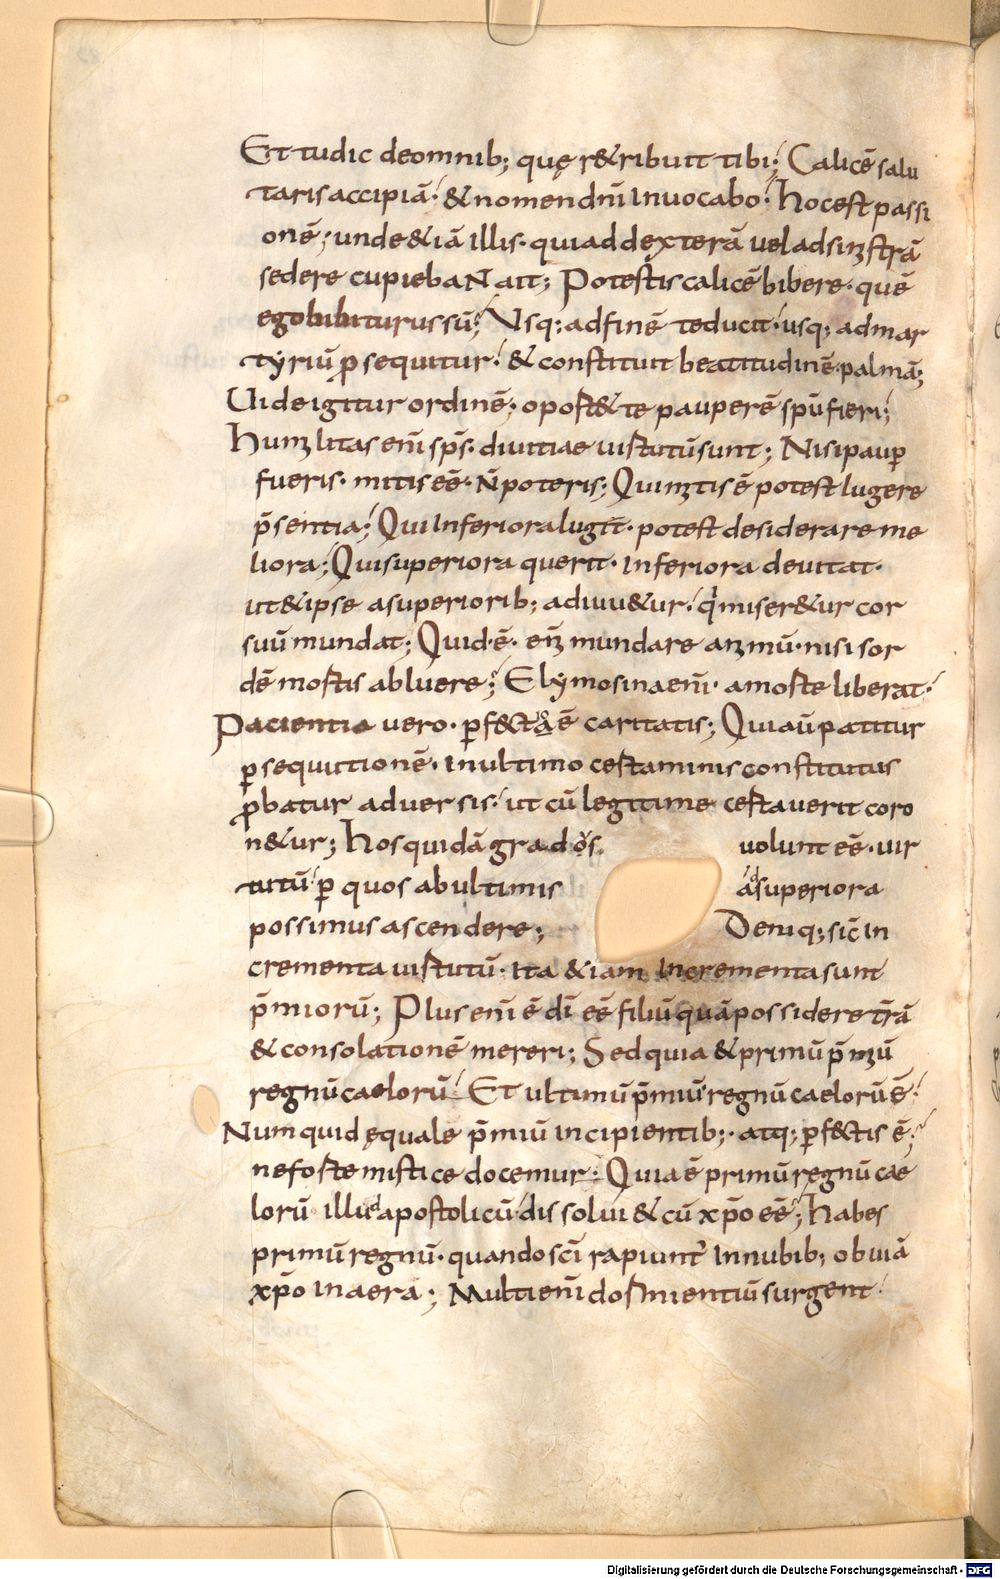 Et tu dic de omnib; quę r&ribuit tibi; Calicē salu
taris accipiā· & nomen dn̄i inuocabo· hoc est passi
onē; unde &iā illis· qui ad dexterā uel ad sinistrā
sedere cupiebant ait; Potestis calicē bibere· quē
ego bibiturus sū; Usq; ad finē te ducit· usq; ad mar
tyriū p̱sequitur· & constituit beatitudinē palmā;
Uide igitur ordinē; oport& te pauperē sp̄u fieri;
Humilitas eni̅ sp̄s· diuitiae uirtutū sunt; Nisi paup̱
fueris· mitis eē· n̄ poteris; Qui mitis ē potest lugere
p̄sentia; Qui inferiora lugit· potest desiderare me
liora; Qui superiora querit· inferiora deuitat·
ut & ipse a superiorib; adiuu&ur· qͥ miser&ur cor
suū mundat; Quid·ē· eni̅ mundare animū· nisi sor
dē mortis abluere; Elymosina eni̅· a morte liberat·
Pacientia uero· p̱f&ta ē caritatis; Qui aū patitur
p̱sequutionē· in ultimo certaminis constitutus
p̱batur aduersis· ut cū legitime certauerit coro
n&ur; Hos quidā grados uolunt eē· uir
tutū· p̱ quos ab ultimis ad superiora
possimus ascendere; Deniq; sic̄ in
crementa uirtutū· ita &iam incrementa sunt
p̄miorū; Plus eni̅ ē dī eē filiū quā possidere t̄rā
& consolationē mereri; Sed quia & primū p̄miū
regnū caelorū· Et ultimū p̄miū regnū caelorū ē·
Numquid ęquale p̄miū incipientib;· atq; p̱f&tis ē;
ne forte mistice docemur· Quia ē primū regnū cae
lorū illud apostolicū· dissolui & cū xp̄o eē; habes
primū regnū· quando sc̄i rapiunt' in nubib; obuiā
xp̄o in aera; Multi eni̅ dormientiū surgent·
Digitalisierung gefördert durch die Deutsche Forschungsgemeinschaft - DFG